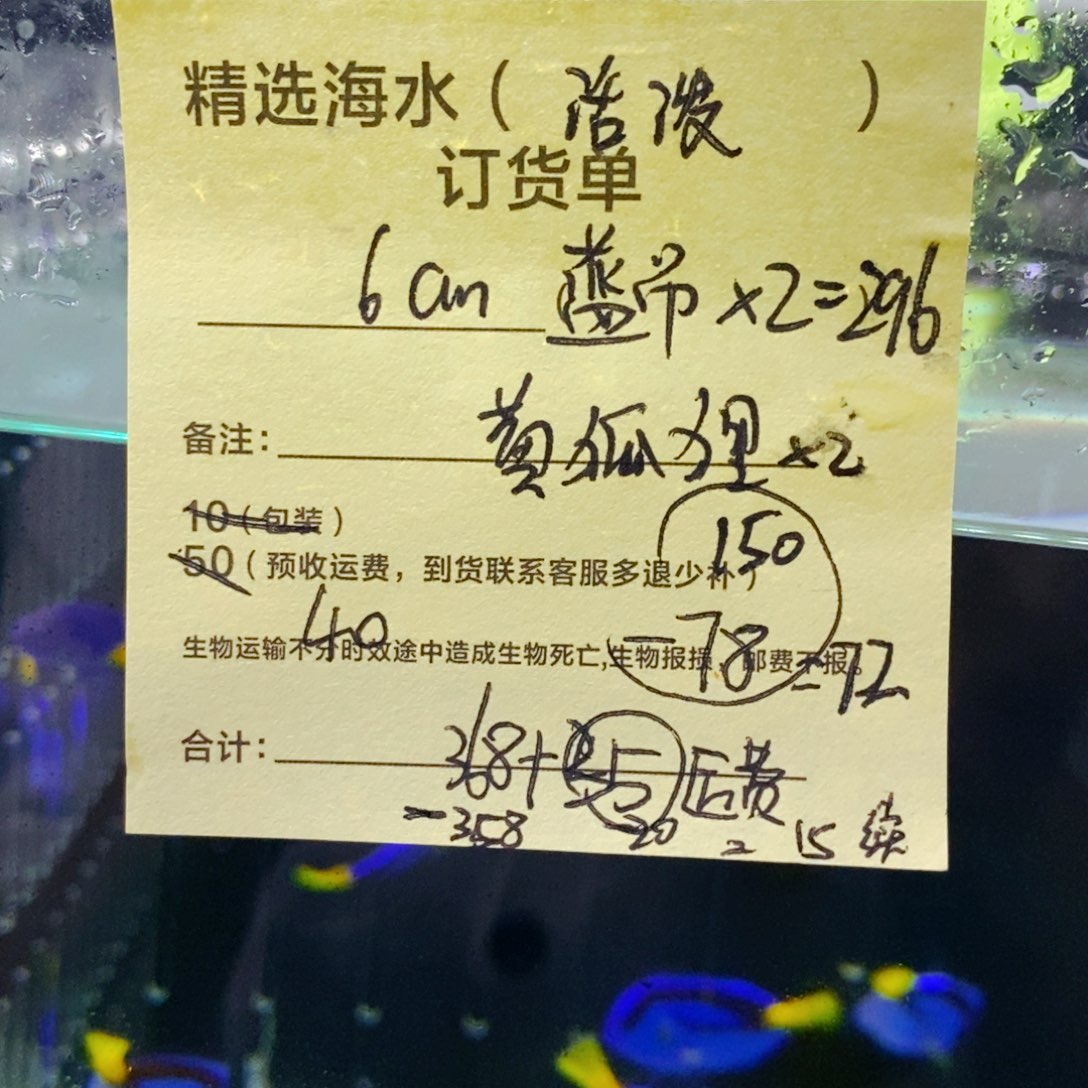 精选海水（浩波）
订货单
6cm 蓝吊 ×2=296
备注：黄狐狸 ×2
10（包装）
50（预收运费，到货联系客服多退少补）
150
40
生物运输不分时效途中造成生物死亡,生物报损，邮费不报。
-78 =72
合计：368+35后费
-358 -20 = 15